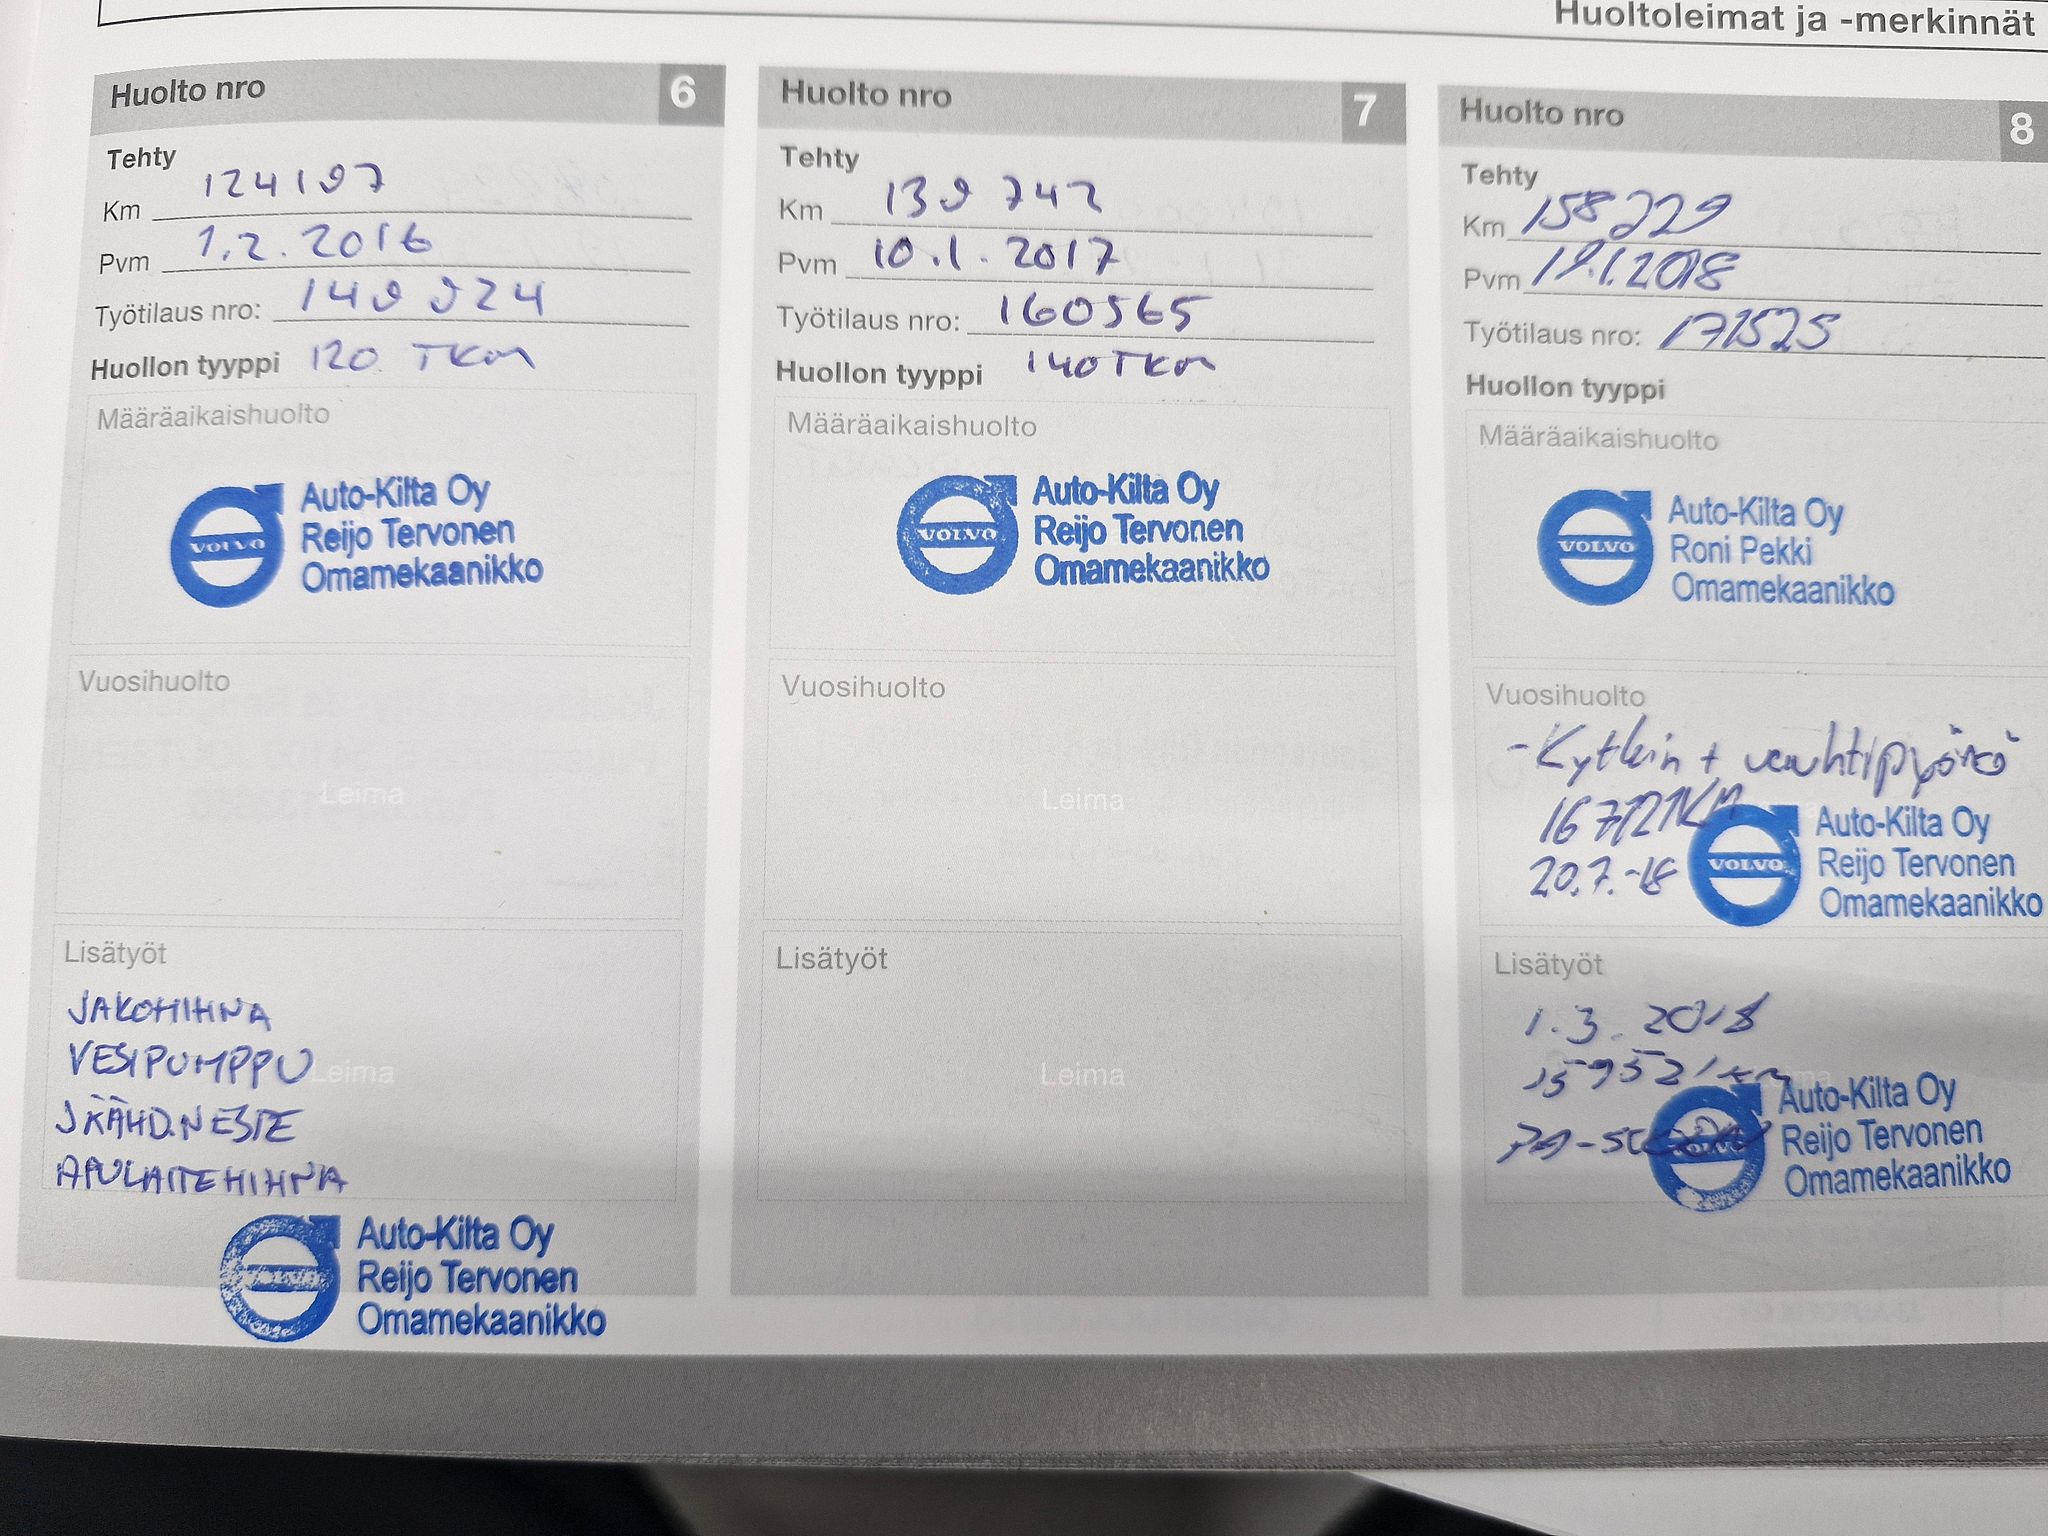 Huoltoleimat ja -merkinnät
Huolto nro 6
Tehty
Km 124197
Pvm 1.2.2016
Työtilaus nro: 149924
Huollon tyyppi 120 TKM
Määräaikaishuolto
VOLVO
Auto-Kilta Oy
Reijo Tervonen
Omamekaanikko
Vuosihuolto
Leima
Lisätyöt
JAKOHIHNA
VESIPUMPPU
Leima
JÄÄHD.NESTE
APULAITEHIHNA
VOLVO
Auto-Kilta Oy
Reijo Tervonen
Omamekaanikko
Huolto nro 7
Tehty
Km 139 742
Pvm 10.1.2017
Työtilaus nro: 160565
Huollon tyyppi 140TKM
Määräaikaishuolto
VOLVO
Auto-Kilta Oy
Reijo Tervonen
Omamekaanikko
Vuosihuolto
Leima
Lisätyöt
Leima
Huolto nro 8
Tehty
Km 158229
Pvm 19.1.2018
Työtilaus nro: 171525
Huollon tyyppi
Määräaikaishuolto
VOLVO
Auto-Kilta Oy
Roni Pekki
Omamekaanikko
Vuosihuolto
-Kytkin + vauhtipyörä
167121KM
20.7.-18
VOLVO
Auto-Kilta Oy
Reijo Tervonen
Omamekaanikko
Lisätyöt
1.3.2018
159521km
Auto-Kilta Oy
Reijo Tervonen
Omamekaanikko